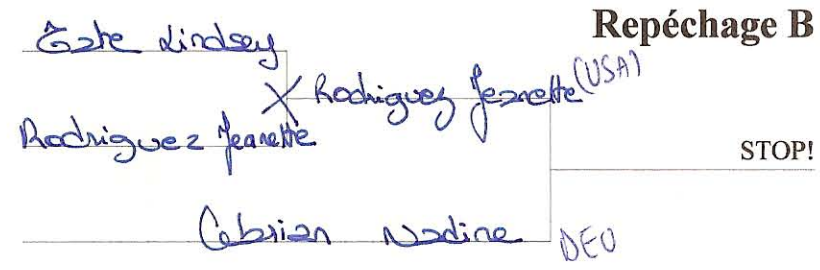 Repéchage B
Tate Lindsey
X Rodriguez Jeanette (USA)
Rodriguez Jeanette
STOP!
Cebrian Nadine DEU